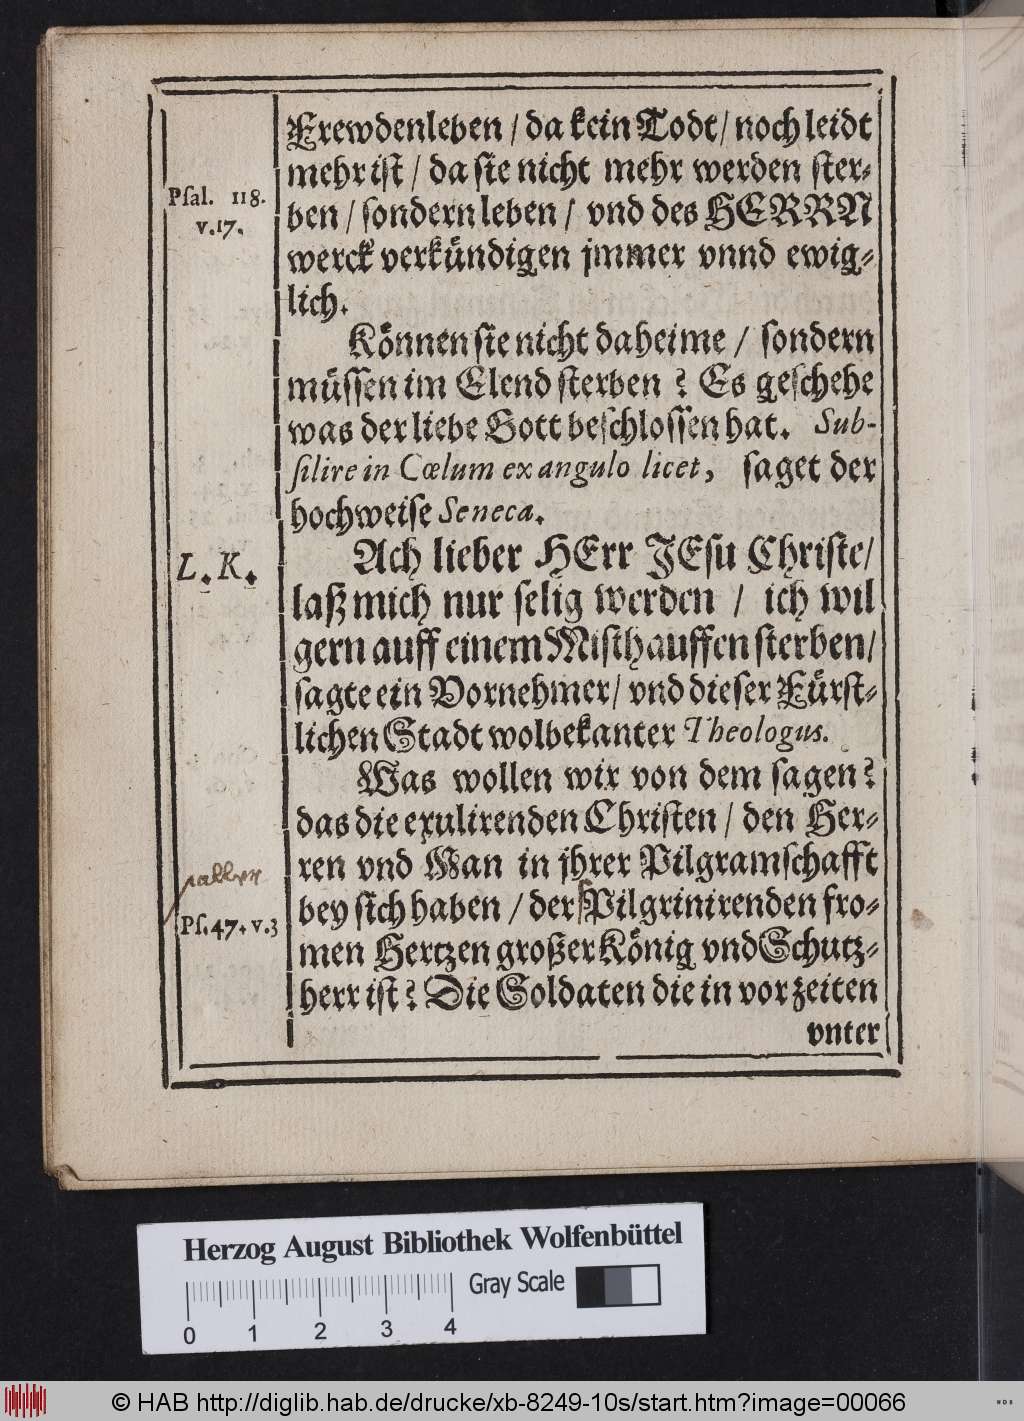 Frewdenleben / da kein Todt / noch leidt
mehr ist / da sie nicht mehr werden ster-
Psal. 118.
v.17.
ben / sondern leben / vnd des HERRN
werck verkündigen jmmer vnnd ewig-
lich.
Können sie nicht daheime / sondern
müssen im Elend sterben? Es geschehe
was der liebe Gott beschlossen hat. Sub-
silire in Cœlum ex angulo licet, saget der
hochweise Seneca.
L. K.
Ach lieber HErr JEsu Christe /
laß mich nur selig werden / ich wil
gern auff einem Misthauffen sterben /
sagte ein Vornehmer / vnd dieser Fürst-
lichen Stadt wolbekanter Theologus.
Was wollen wir von dem sagen?
das die exulirenden Christen / den Her-
ren vnd Man in jhrer Pilgramschafft
bey sich haben / der Pilgrinirenden fro-
Ps. 47. v.3
men Hertzen großer König vnd Schutz-
herr ist? Die Soldaten die in vorzeiten
vnter
Herzog August Bibliothek Wolfenbüttel
Gray Scale
0 1 2 3 4
© HAB http://diglib.hab.de/drucke/xb-8249-10s/start.htm?image=00066